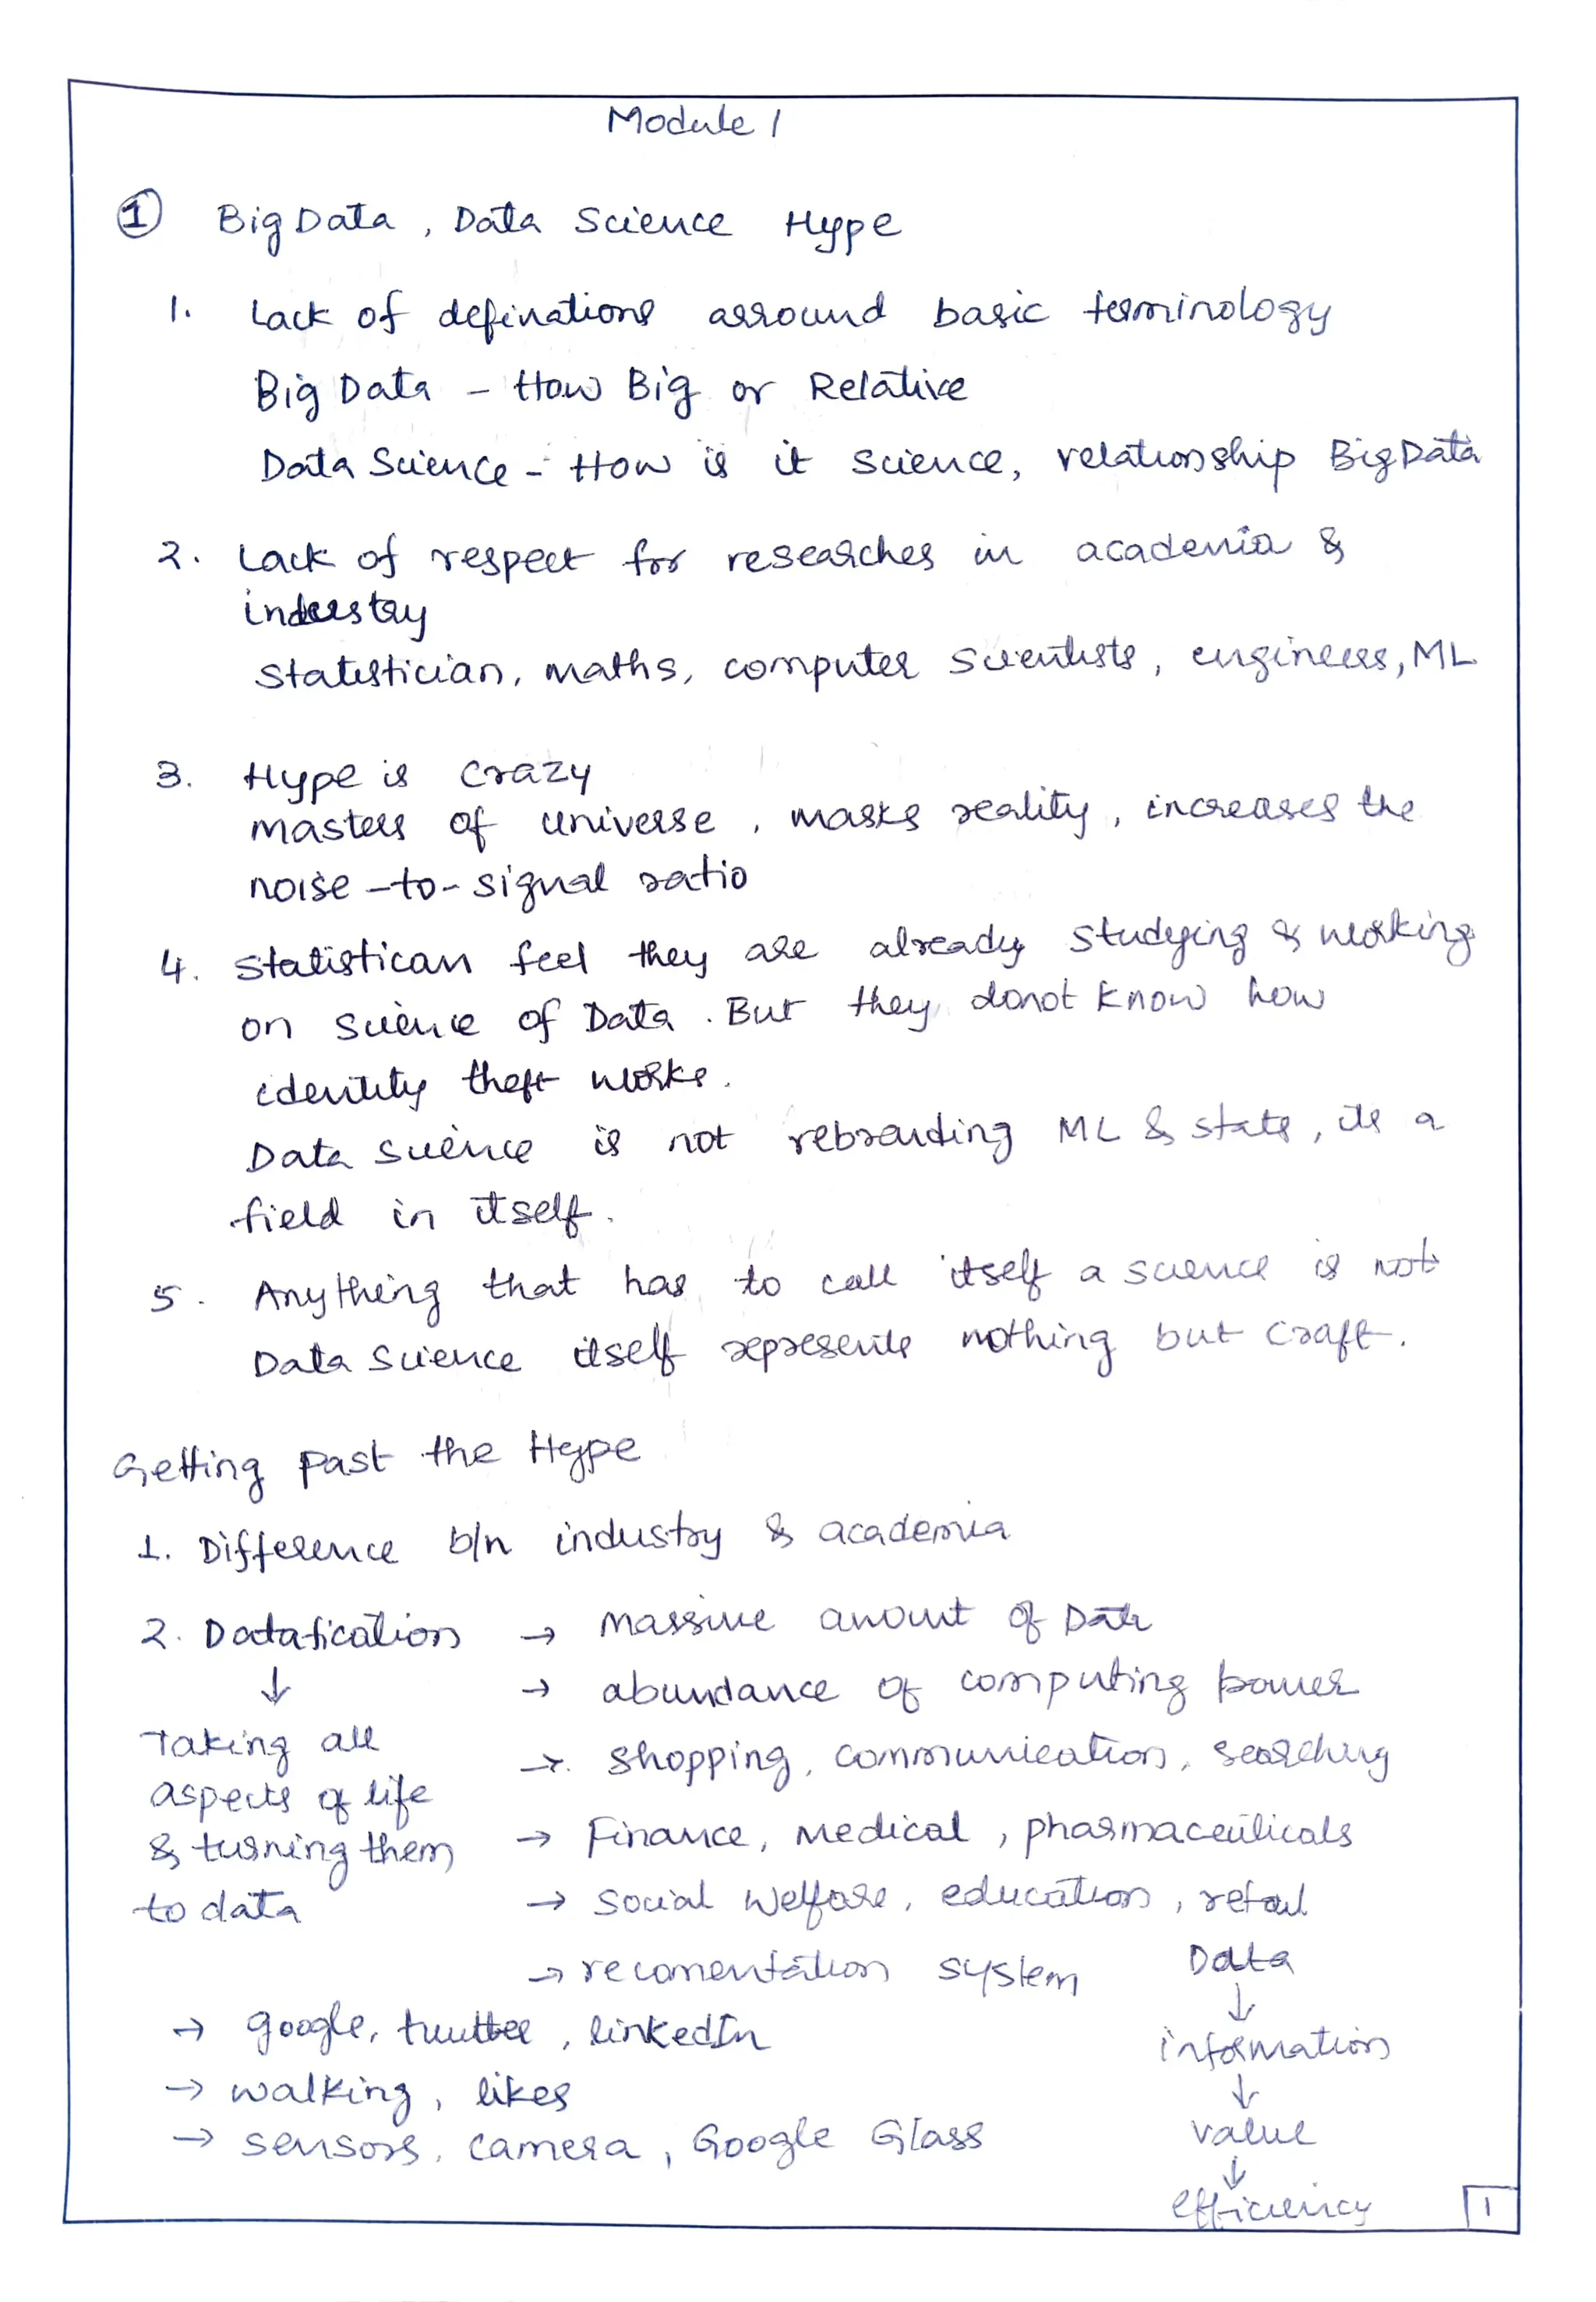 Module 1
① Big Data, Data Science Hype
1. Lack of definations arround basic terminology
Big Data - How Big or Relative
Data Science - How is it science, relationship Big Data
2. Lack of respect for researches in academia &
industry
Statistician, maths, computer scientists, engineers, ML
3. Hype is crazy
masters of universe, masks reality, increases the
noise-to-signal ratio
4. Statistican feel they are already studying & working
on science of Data. But they donot know how
identity theft works.
Data science is not rebranding ML & stats, its a
field in itself.
5. Anything that has to call itself a science is not
Data Science itself represents nothing but craft.
Getting past the Hype
1. Difference b/n industry & academia
2. Datafication → Massive amount of Data
↓
→ abundance of computing power
Taking all
aspects of life
& turning them
to data
→ shopping, communication, searching
→ Finance, medical, pharmaceuticals
→ social welfare, education, retail
→ recomentation system
→ google, twitter, linkedIn
→ walking, likes
→ sensors, camera, Google Glass
Data
↓
information
↓
value
↓
efficiency
1